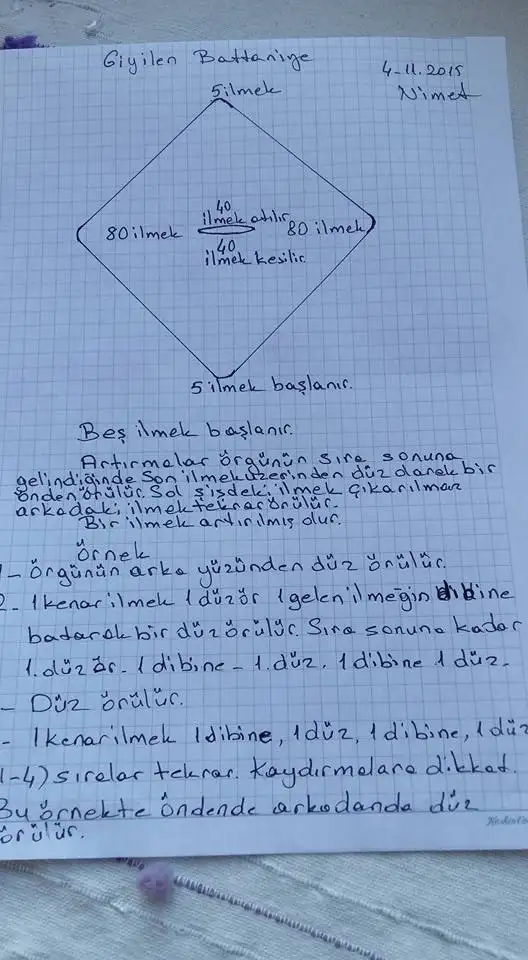 Giyilen Battaniye
4-11.2015
Nimet
5 ilmek
40
ilmek atılır
80 ilmek
80 ilmek
40
ilmek kesilir
5 ilmek başlanır.
Beş ilmek başlanır.
Artırmalar örgünün sıra sonuna
gelindiğinde son ilmek üzerinden düz olarak bir
önden örülür. Sol şişdeki ilmek çıkarılmaz
arkadaki ilmek tekrar örülür.
Bir ilmek artırılmış olur.
Örnek
1- Örgünün arka yüzünden düz örülür.
2- 1 kenar ilmek 1 düz ör 1 gelen ilmeğin dibine
batarak bir düz örülür. Sıra sonuna kadar
1. düz ör. 1 dibine - 1. düz. 1 dibine 1 düz.
- Düz örülür.
- 1 kenar ilmek 1 dibine, 1 düz, 1 dibine, 1 düz
1-4) sıralar tekrar. Kaydırmalara dikkat.
Bu örnekte öndende arkadanda düz
örülür.